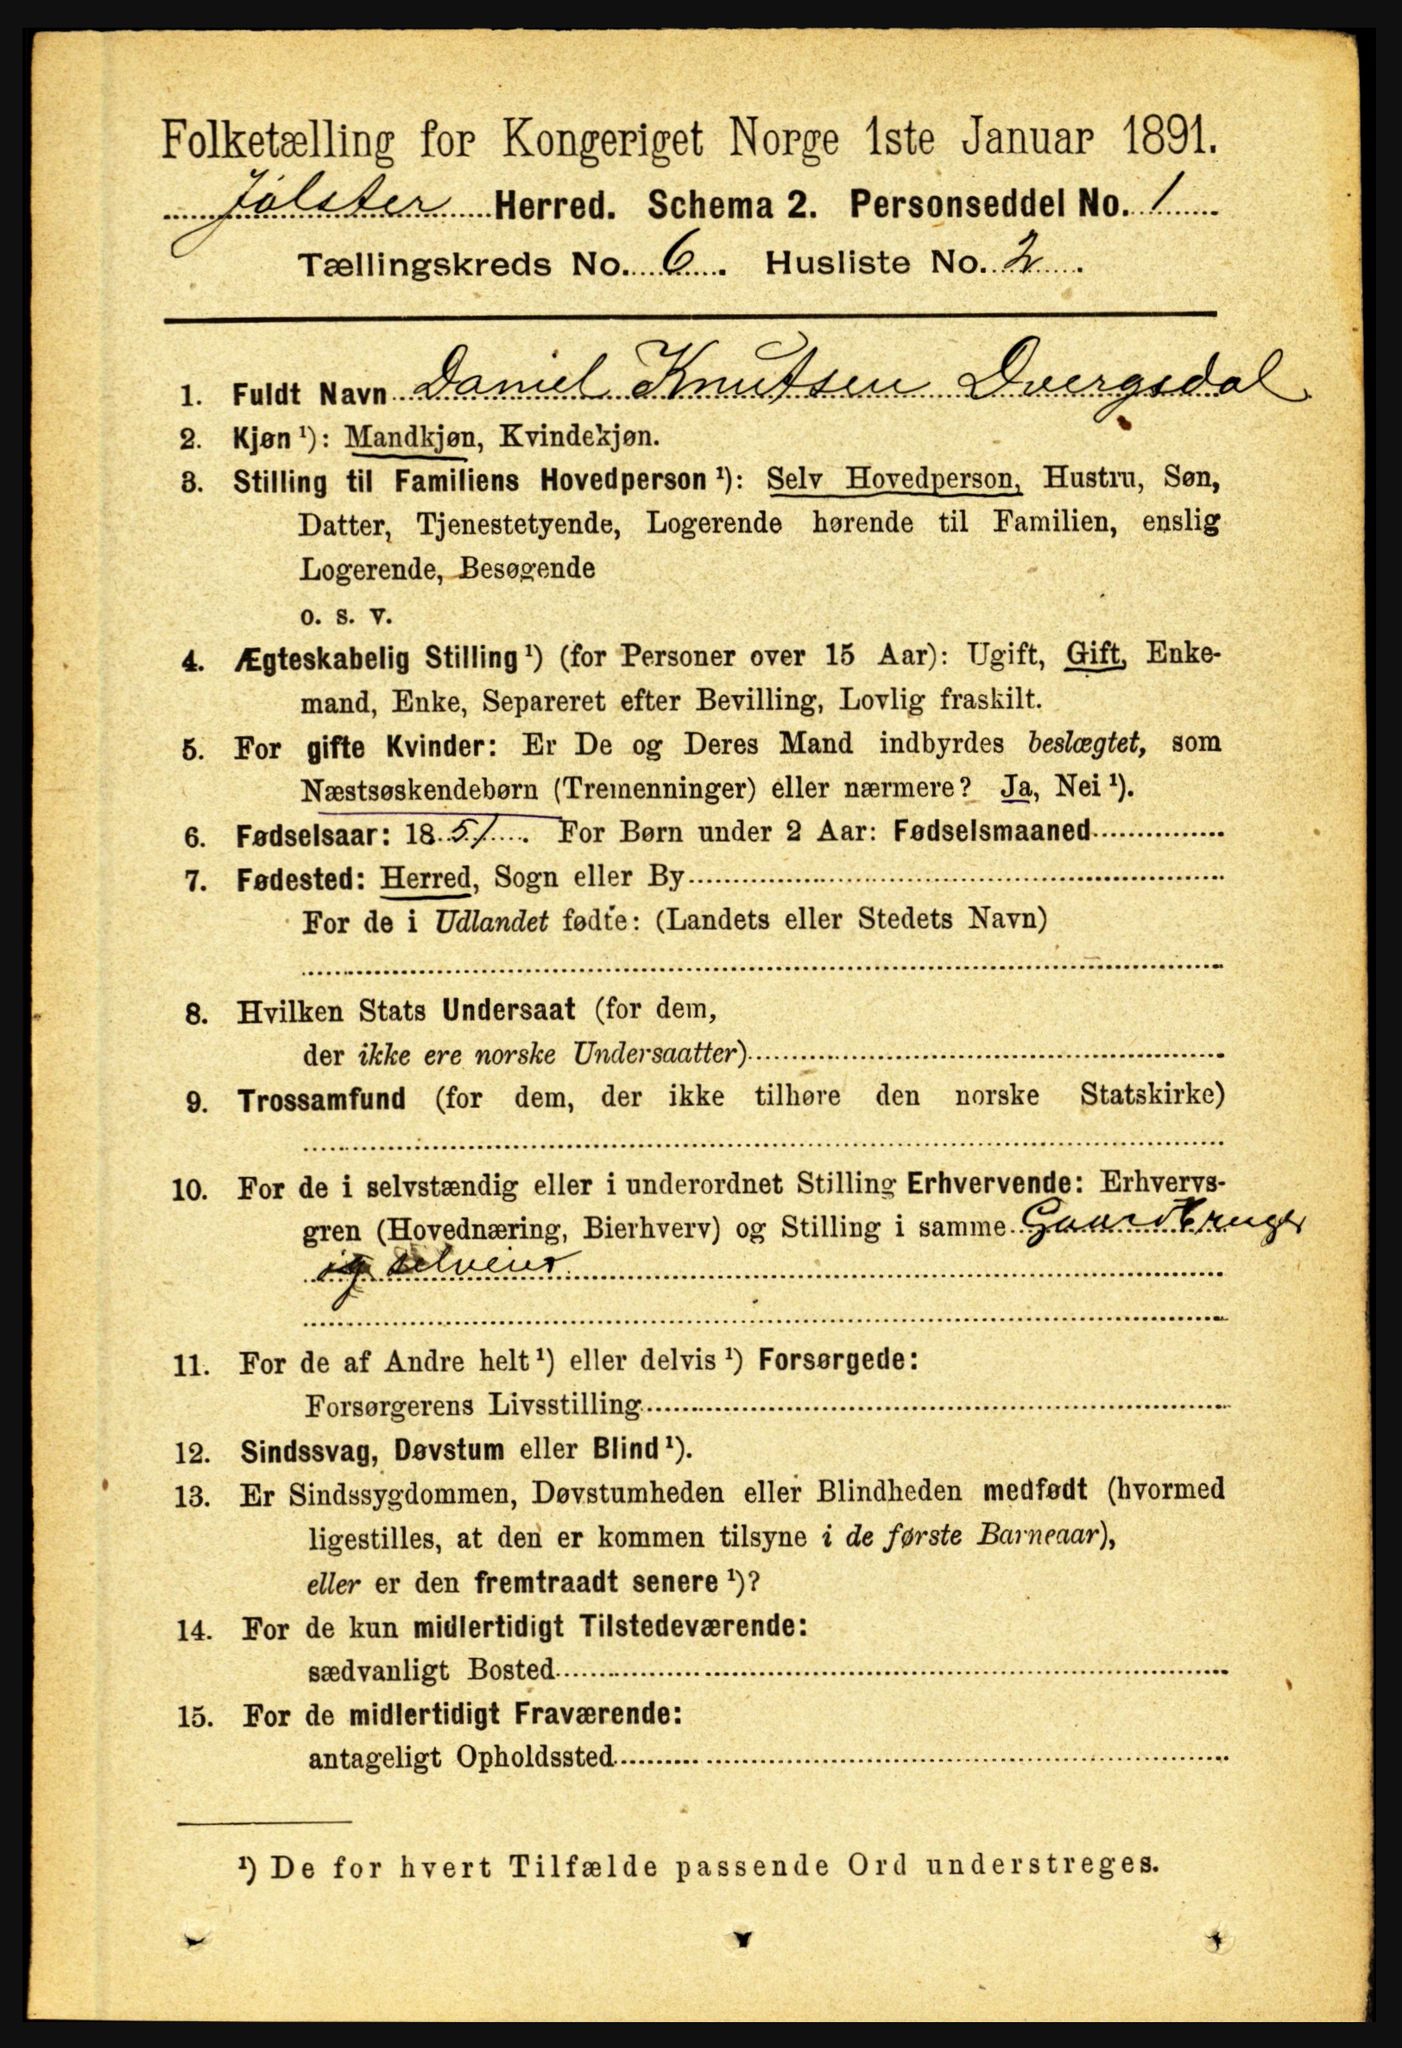 Folketælling for Kongeriget Norge 1ste Januar 1891.
Jølster Herred. Schema 2. Personseddel No. 1
Tællingskreds No. 6. Husliste No. 2.
1. Fuldt Navn Daniel Knutsen Dvergsdal
2. Kjøn ¹): Mandkjøn, Kvindekjøn.
3. Stilling til Familiens Hovedperson ¹): Selv Hovedperson, Hustru, Søn,
Datter, Tjenestetyende, Logerende hørende til Familien, enslig
Logerende, Besøgende
o. s. v.
4. Ægteskabelig Stilling ¹) (for Personer over 15 Aar): Ugift, Gift, Enke-
mand, Enke, Separeret efter Bevilling, Lovlig fraskilt.
5. For gifte Kvinder: Er De og Deres Mand indbyrdes beslægtet, som
Næstsøskendebørn (Tremenninger) eller nærmere? Ja, Nei ¹).
6. Fødselsaar: 1851. For Børn under 2 Aar: Fødselsmaaned
7. Fødested: Herred, Sogn eller By
For de i Udlandet fødte: (Landets eller Stedets Navn)
8. Hvilken Stats Undersaat (for dem,
der ikke ere norske Undersaatter)
9. Trossamfund (for dem, der ikke tilhøre den norske Statskirke)
10. For de i selvstændig eller i underordnet Stilling Erhvervende: Erhvervs-
gren (Hovednæring, Bierhverv) og Stilling i samme Gaardbruger
og selveier
11. For de af Andre helt ¹) eller delvis ¹) Forsørgede:
Forsørgerens Livsstilling
12. Sindssvag, Døvstum eller Blind ¹).
13. Er Sindssygdommen, Døvstumheden eller Blindheden medfødt (hvormed
ligestilles, at den er kommen tilsyne i de første Barneaar),
eller er den fremtraadt senere ¹)?
14. For de kun midlertidigt Tilstedeværende:
sædvanligt Bosted
15. For de midlertidigt Fraværende:
antageligt Opholdssted
¹) De for hvert Tilfælde passende Ord understreges.